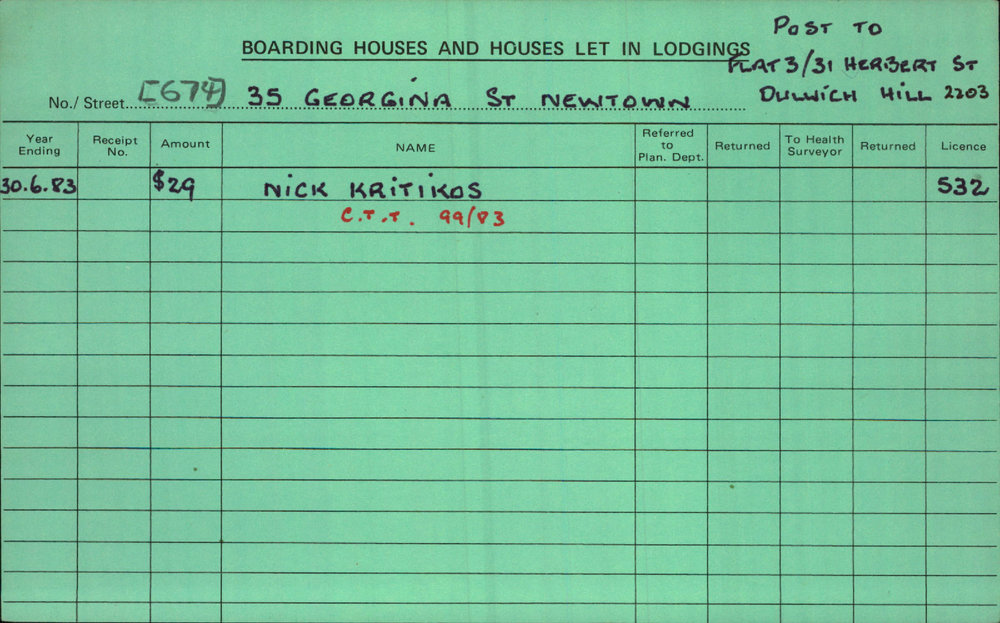 POST TO
BOARDING HOUSES AND HOUSES LET IN LODGINGS
FLAT 3/31 HERBERT ST
No./ Street [674] 35 GEORGINA ST NEWTOWN
DULWICH HILL 2203
Year Ending
Receipt No.
Amount
NAME
Referred to Plan. Dept.
Returned
To Health Surveyor
Returned
Licence
30.6.83 $29 NICK KRITIKOS 532
C.T.T. 99/83